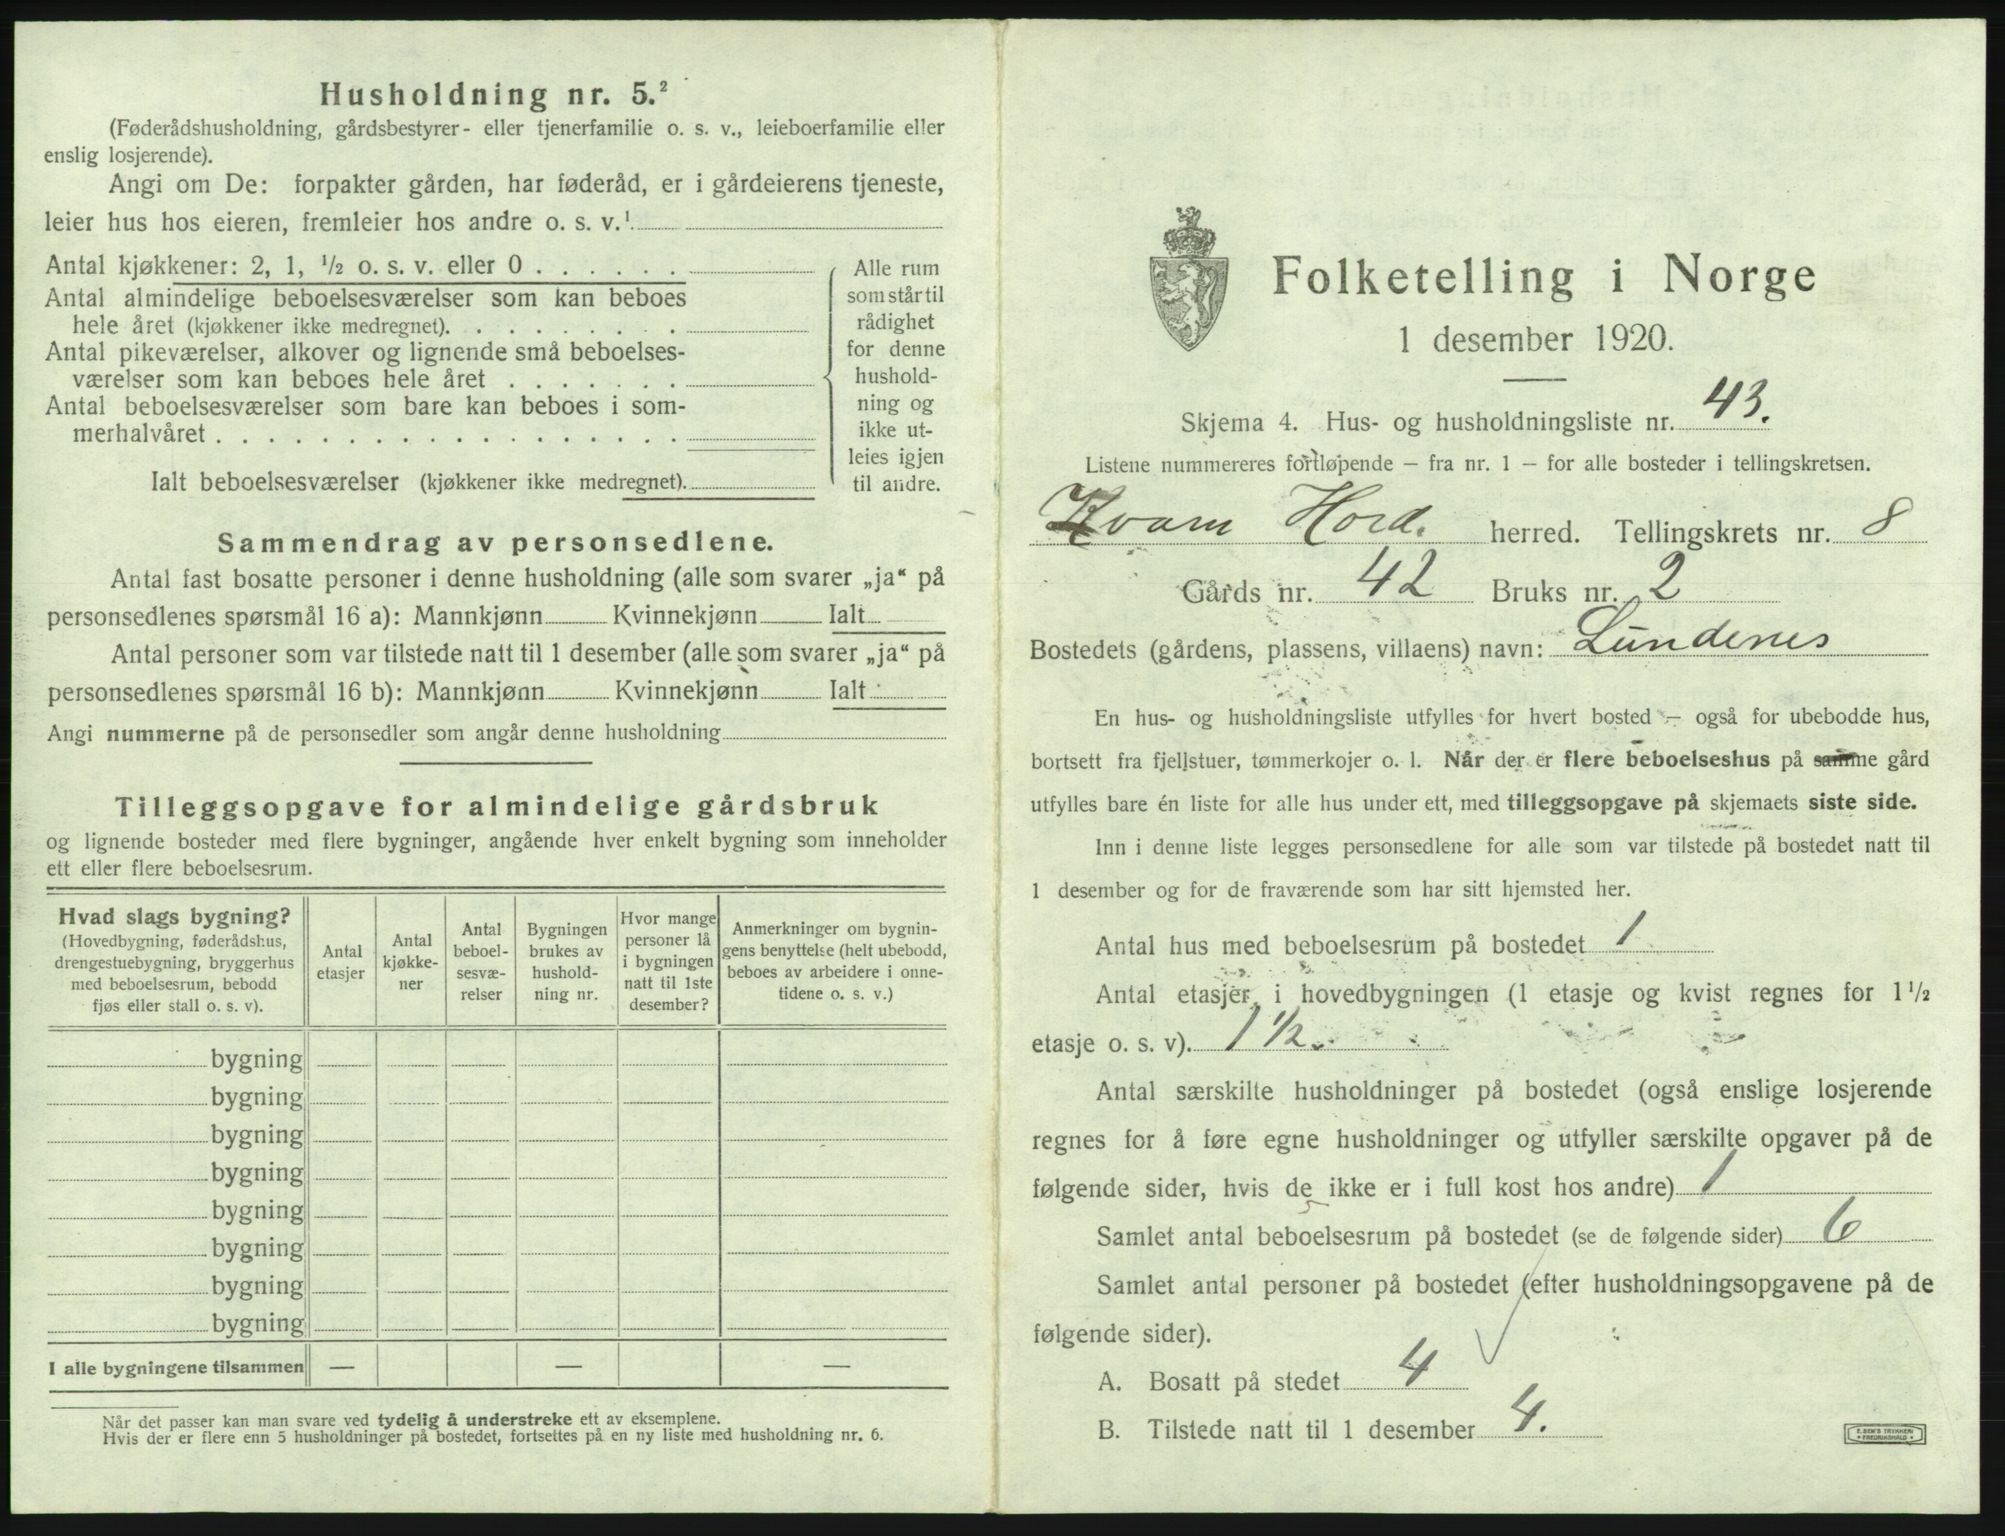 Husholdning nr. 5.²
(Føderådshusholdning, gårdsbestyrer- eller tjenerfamilie o. s. v., leieboerfamilie eller
enslig losjerende).
Angi om De: forpakter gården, har føderåd, er i gårdeierens tjeneste,
leier hus hos eieren, fremleier hos andre o. s. v.¹
Antal kjøkkener: 2, 1, ½ o. s. v. eller 0 . . . . . .
Antal almindelige beboelsesværelser som kan beboes
hele året (kjøkkener ikke medregnet). . . . . . . . .
Antal pikeværelser, alkover og lignende små beboelses-
værelser som kan beboes hele året . . . . . . .
Antal beboelsesværelser som bare kan beboes i som-
merhalvåret . . . . . . . . . . . . . . . . . .
Ialt beboelsesværelser (kjøkkener ikke medregnet).
Alle rum
som står til
rådighet
for denne
hushold-
ning og
ikke ut-
leies igjen
til andre.
Sammendrag av personsedlene.
Antal fast bosatte personer i denne husholdning (alle som svarer „ja“ på
personsedlenes spørsmål 16 a): Mannkjønn Kvinnekjønn Ialt
Antal personer som var tilstede natt til 1 desember (alle som svarer „ja“ på
personsedlenes spørsmål 16 b): Mannkjønn Kvinnekjønn Ialt
Angi nummerne på de personsedler som angår denne husholdning
Tilleggsopgave for almindelige gårdsbruk
og lignende bosteder med flere bygninger, angående hver enkelt bygning som inneholder
ett eller flere beboelsesrum.
Hvad slags bygning?
(Hovedbygning, føderådshus,
drengestuebygning, bryggerhus
med beboelsesrum, bebodd
fjøs eller stall o. s. v).
Antal
etasjer
Antal
kjøkke-
ner
Antal
beboel-
sesvæ-
relser
Bygningen
brukes av
hushold-
ning nr.
Hvor mange
personer lå
i bygningen
natt til 1ste
desember?
Anmerkninger om bygnin-
gens benyttelse (helt ubebodd,
beboes av arbeidere i onne-
tidene o. s. v.)
bygning
bygning
bygning
bygning
bygning
bygning
bygning
bygning
I alle bygningene tilsammen — — —
Når det passer kan man svare ved tydelig å understreke ett av eksemplene.
Hvis der er flere enn 5 husholdninger på bostedet, fortsettes på en ny liste med husholdning nr. 6.
Folketelling i Norge
1 desember 1920.
Skjema 4. Hus- og husholdningsliste nr. 43.
Listene nummereres fortløpende – fra nr. 1 – for alle bosteder i tellingskretsen.
Kvam Hord. herred. Tellingskrets nr. 8
Gårds nr. 42 Bruks nr. 2
Bostedets (gårdens, plassens, villaens) navn: Lundenes
En hus- og husholdningsliste utfylles for hvert bosted – også for ubebodde hus,
bortsett fra fjellstuer, tømmerkojer o. l. Når der er flere beboelseshus på samme gård
utfylles bare én liste for alle hus under ett, med tilleggsopgave på skjemaets siste side.
Inn i denne liste legges personsedlene for alle som var tilstede på bostedet natt til
1 desember og for de fraværende som har sitt hjemsted her.
Antal hus med beboelsesrum på bostedet 1
Antal etasjer i hovedbygningen (1 etasje og kvist regnes for 1½
etasje o. s. v). 1½.
Antal særskilte husholdninger på bostedet (også enslige losjerende
regnes for å føre egne husholdninger og utfyller særskilte opgaver på de
følgende sider, hvis de ikke er i full kost hos andre) 1
Samlet antal beboelsesrum på bostedet (se de følgende sider) 6
Samlet antal personer på bostedet (efter husholdningsopgavene på de
følgende sider).
A. Bosatt på stedet 4
B. Tilstede natt til 1 desember 4.